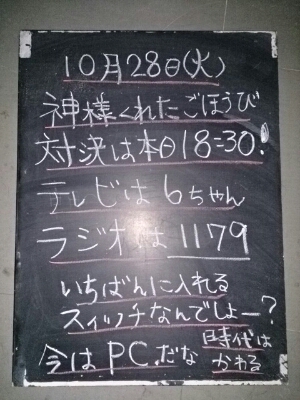 10月28日(火)
神様くれたごほうび
対決は本日18=30!
テレビは6ちゃん
ラジオは1179
いちばんに入れる
スイッチなんでしょー?
今はPCだな 時代はかわる